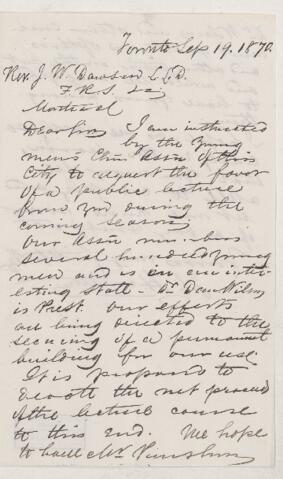 Toronto Sep 19. 1870.
Rev. J. W. Dawson L.L.D.
F.R.S. &c
Montreal
Dear Sir I am instructed
by the Young
men's Chn. Assn of this
City to request the favor
of a public lecture
from you during the
coming season.
Our Assn numbers
several hundred young
men and is in an inter-
esting state - Dr Dan Wilson
is Prest. our efforts
are being directed to the
securing of a permanent
building for our use.
It is proposed to
devote the net proceeds
of the lecture course
to this end. We hope
to have Mr Punshon,